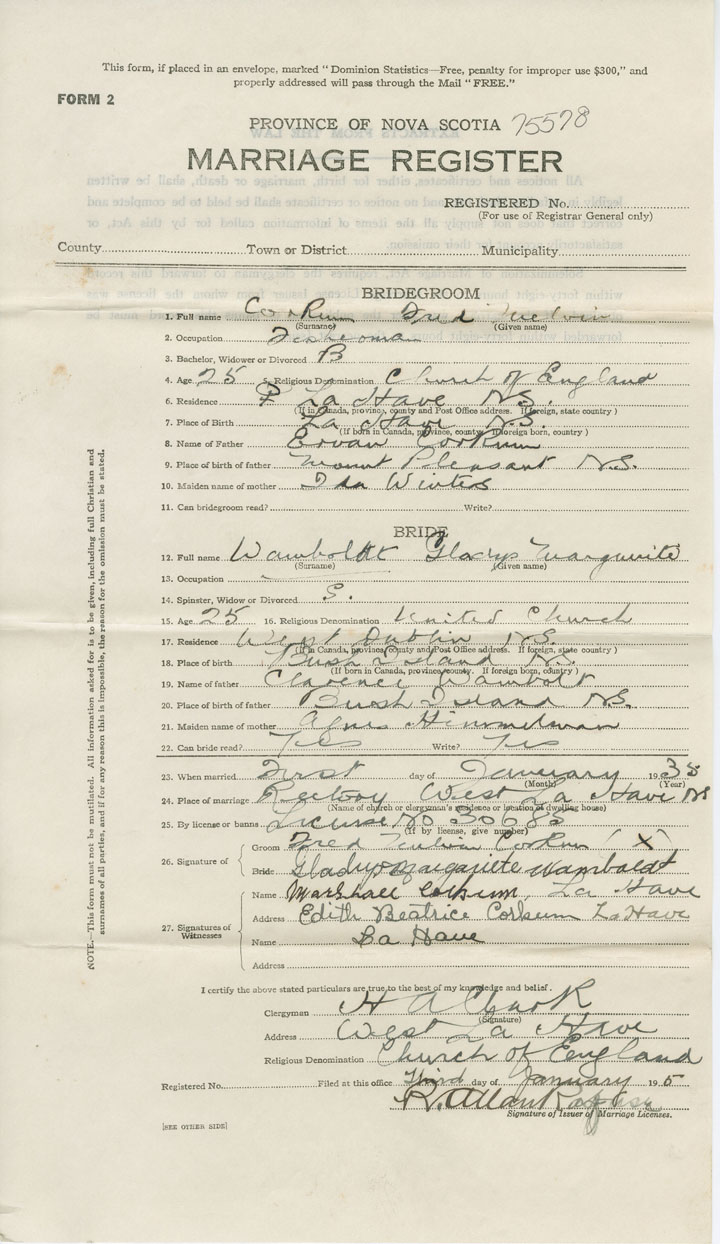 This form, if placed in an envelope, marked "Dominion Statistics—Free, penalty for improper use $300," and
properly addressed will pass through the Mail "FREE."
FORM 2
PROVINCE OF NOVA SCOTIA 75578
MARRIAGE REGISTER
REGISTERED No.
(For use of Registrar General only)
County Town or District Municipality
BRIDEGROOM
1. Full name Corkum Fred Melvin
(Surname) (Given name)
2. Occupation Fisherman
3. Bachelor, Widower or Divorced B
4. Age 25 5. Religious Denomination Church of England
6. Residence La Have N.S.
(If in Canada, province, county and Post Office address. If foreign, state country)
7. Place of Birth La Have N.S.
(If born in Canada, province, county. If foreign born, country)
8. Name of Father Corkum
9. Place of birth of father Mount Pleasant N.S.
10. Maiden name of mother Ida Winters
11. Can bridegroom read? Write?
BRIDE
12. Full name Wamboldt Gladys Marguerite
(Surname) (Given name)
13. Occupation
14. Spinster, Widow or Divorced S.
15. Age 25 16. Religious Denomination United Church
17. Residence West Dublin N.S.
(If in Canada, province, county and Post Office address. If foreign, state country)
18. Place of birth Bush Island N.S.
(If born in Canada, province, county. If foreign born, country)
19. Name of father Clarence Wambolt
20. Place of birth of father Bush Island N.S.
21. Maiden name of mother Agnes Himmelman
22. Can bride read? Yes Write? Yes
23. When married First day of January 1935
(Month) (Year)
24. Place of marriage Rectory West La Have NS
(Name of church or clergyman's residence or location of dwelling house)
25. By license or banns License No 30685
(If by license, give number)
26. Signature of
Groom Fred Melvin Corkum (X)
Bride Gladys Marguerite Wamboldt
27. Signatures of Witnesses
Name Marshall Corkum, La Have
Address Edith Beatrice Corkum LaHave
Name La Have
Address
I certify the above stated particulars are true to the best of my knowledge and belief.
Clergyman H A
(Signature)
Address West La Have
Religious Denomination Church of England
Registered No. Filed at this office Third day of January 1935
R. Allan
Signature of Issuer of Marriage Licenses.
[SEE OTHER SIDE]
NOTE.—This form must not be mutilated. All information asked for is to be given, including full Christian and
surnames of all parties, and if for any reason this is impossible, the reason for the omission must be stated.